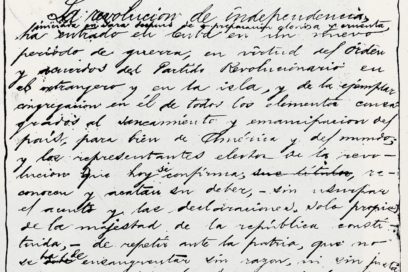 La revolución de independencia,
iniciada en Yara después de preparación gloriosa y cruenta
ha entrado en Cuba en un nuevo
período de guerra, en virtud del orden
y acuerdos del Partido Revolucionario en
el extrangero y en la isla, y de la ejemplar
congregacion en él de todos los elementos consa-
grados al saneamiento y emancipacion del
país, para bien de América y del mundo;
y los representantes electos de la revo-
lucion que hoy se confirma, reco-
nocen y acatan su deber, - sin usurpar
el acento y las declaraciones, solo propias
de la majestad de la república consti-
tuida, - de repetir ante la patria, que no
se ha de ensangrentar sin razon, ni sin justa